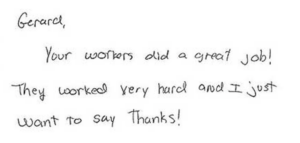 Gerard,
Your workers did a great job!
They worked very hard and I just
want to say Thanks!